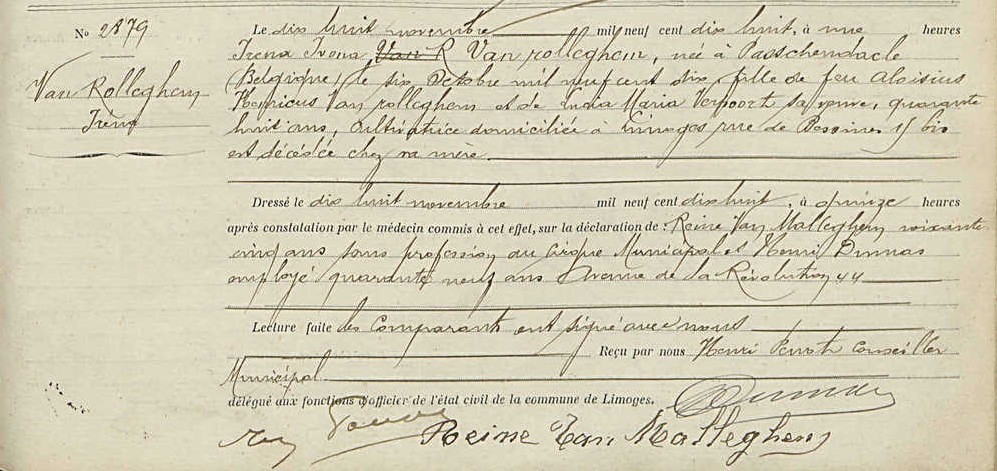 No 2879
Van Rolleghem
Irèna
Le dix huit novembre mil neuf cent dix huit, à une heures
Irena Ivona Van R Van rolleghem, née à Passchendaele
(Belgique) le six Octobre mil neuf cent dix, fille de feu Aloïsius
Henricus Van rolleghem et de Maria Vervoort sa veuve, quarante
huit ans, Cultivatrice domiciliée à Limoges rue de Bessines 15 bis
est décédée chez sa mère.
Dressé le dix huit novembre mil neuf cent dix huit, à quinze heures
après constatation par le médecin commis à cet effet, sur la déclaration de : Reine Van Malleghem soixante
cinq ans sans profession au Cirque Municipal et Henri Dumas
employé quarante neuf ans Avenue de la Révolution 44
Lecture faite les Comparants ont signé avec nous
Reçu par nous Henri Conseiller
Municipal
délégué aux fonctions d'officier de l'état civil de la commune de Limoges.
Dumas
Reine Van Malleghem